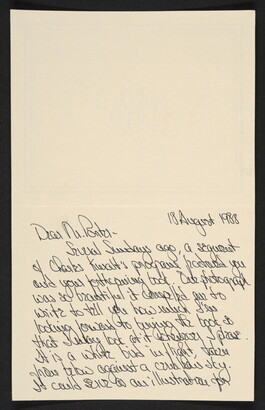 18 August 1988
Dear Mr. Porter -
Several Sundays ago, a segment
of Charles Kuralt's programs portrayed you
and your forthcoming book. One photograph
was so beautiful it compelled me to
write to tell you how much I'm
looking forward to buying the book so
that I may look at it whenever I please.
It is a white bird in flight, taken
from below against a cerulean sky.
It could serve as an illustration for